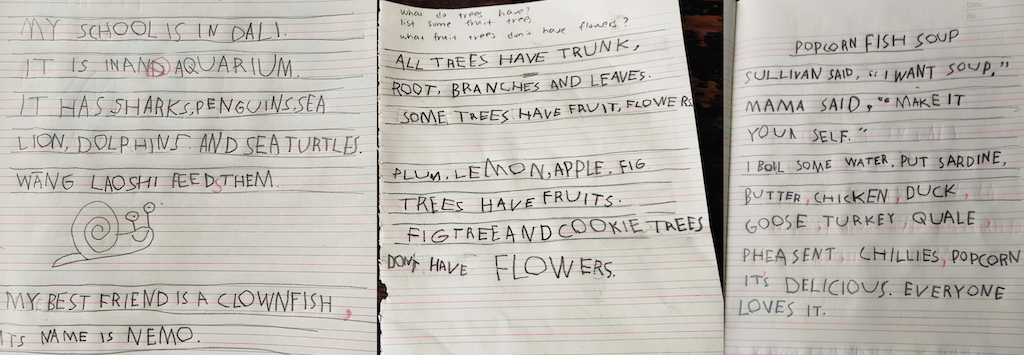 MY SCHOOL IS IN DALI.
IT IS IN AN AQUARIUM.
IT HAS SHARKS, PENGUINS, SEA
LION, DOLPHINS AND SEA TURTLES.
WANG LAOSHI FEEDS THEM.
MY BEST FRIEND IS A CLOWNFISH,
ITS NAME IS NEMO.
What do trees have?
list some fruit trees.
what fruit trees don't have flowers?
ALL TREES HAVE TRUNK,
ROOT, BRANCHES AND LEAVES.
SOME TREES HAVE FRUIT, FLOWERS
PLUM, LEMON, APPLE. FIG
TREES HAVE FRUITS.
FIG TREE AND COOKIE TREES
DON'T HAVE FLOWERS.
Date
No
POPCORN FISH SOUP
SULLIVAN SAID, "I WANT SOUP."
MAMA SAID, "MAKE IT
YOUR SELF."
I BOIL SOME WATER, PUT SARDINE,
BUTTER, CHICKEN, DUCK,
GOOSE, TURKEY, QUALE,
PHEASENT, CHILLIES, POPCORN
IT'S DELICIOUS. EVERYONE
LOVES IT.